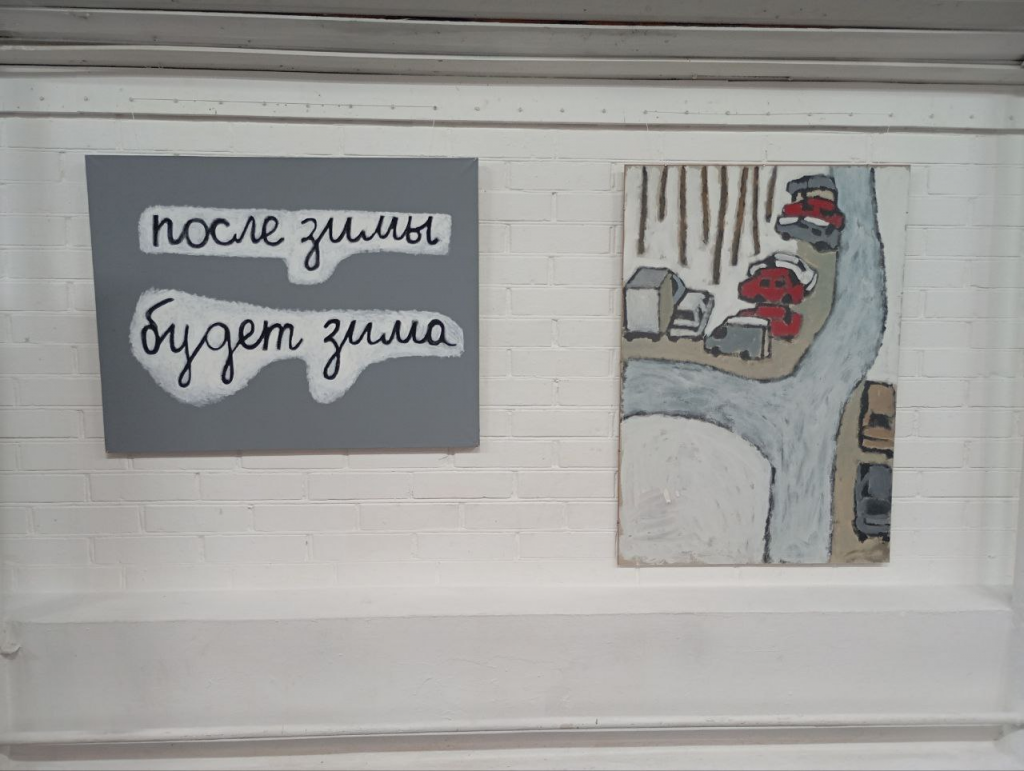 после зимы
будет зима